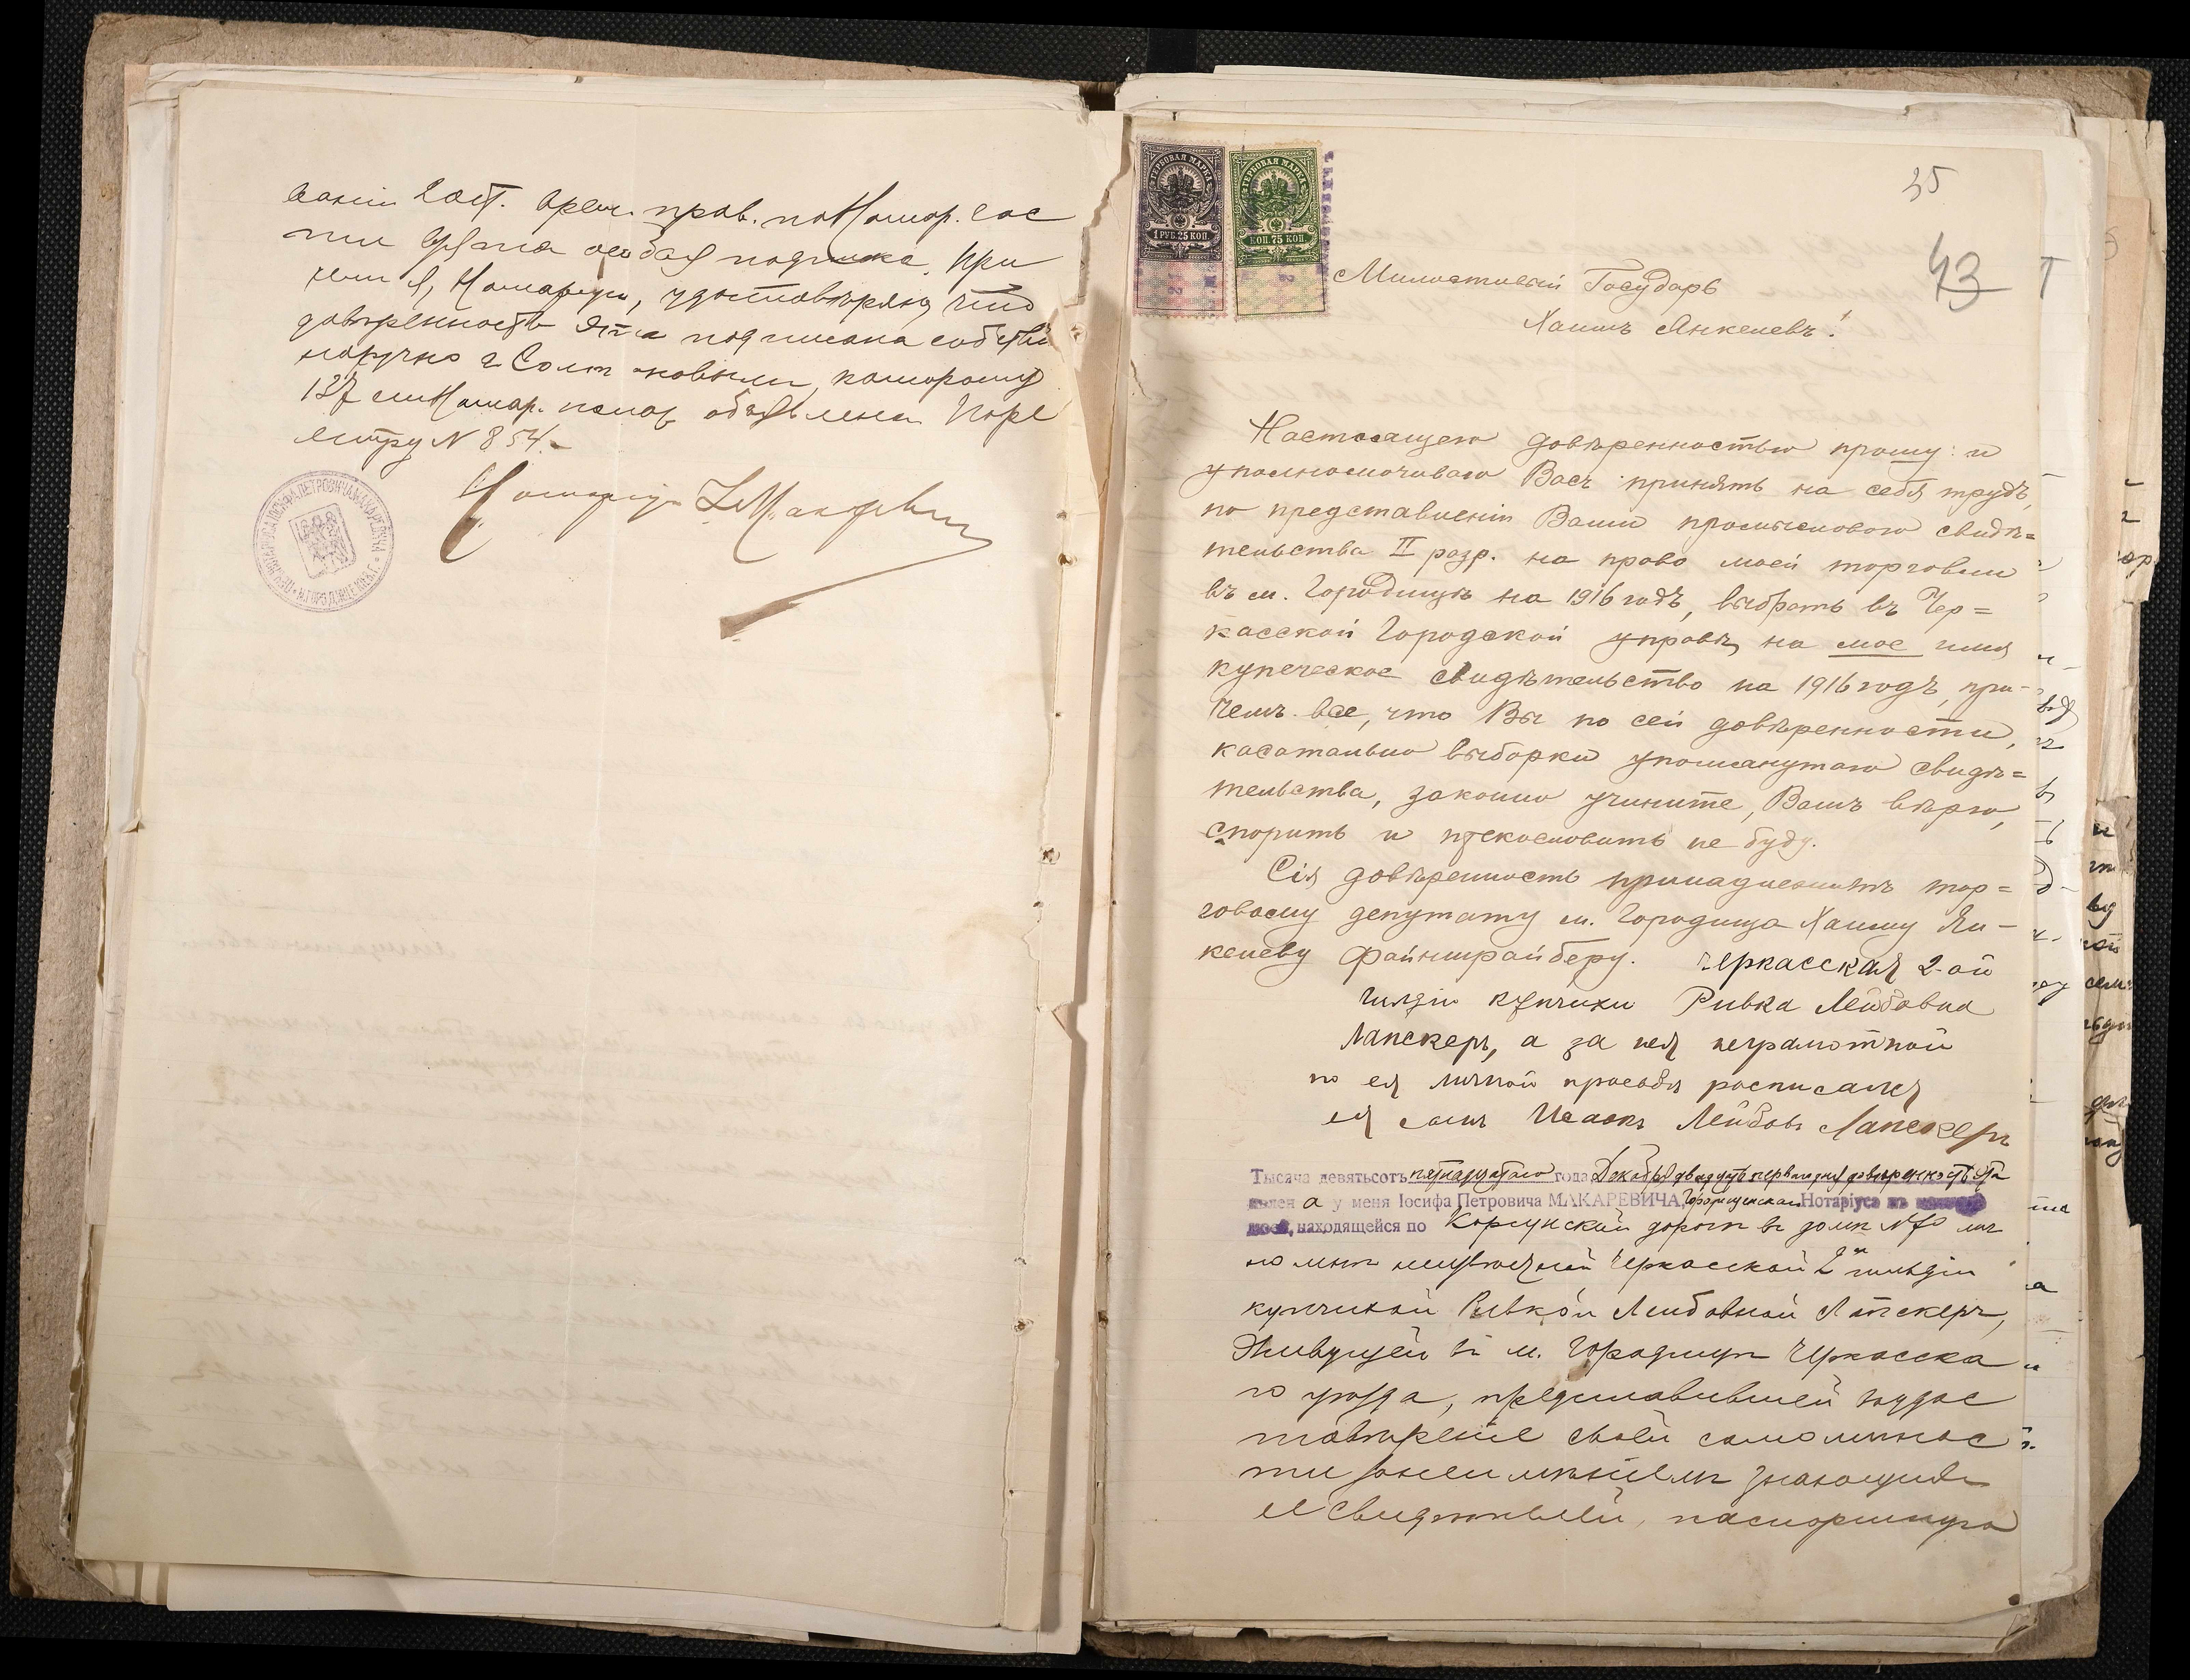 вании 20 ст. врем. прав. по Нотар. час
ти взята особая подписка. При
чемъ я, Нотаріусъ, удостовѣряю, что
довѣренность эта подписана собствен
норучно г Солт новымъ, которому
ст Нотар. полож. объявлена По ре
естру N 854.
Нотаріусъ І. Макаревичъ
ГЕРБОВАЯ МАРКА
1 РУБ. 25 КОП.
ГЕРБОВАЯ МАРКА
75 КОП.
35
43
Милостивый Государь
Хаимъ Янкелевъ!
Настоящею довѣренностью прошу и
уполномочиваю Васъ принять на себя трудъ,
по представленіи Вами промысловаго свидѣ=
тельства II разр. на право моей торговли
въ м. Городищѣ на 1916 годъ, выбрать въ Чер=
касской Городской управѣ на мое имя
купеческое свидѣтельство на 1916 годъ, при-
чемъ все, что Вы по сей довѣренности,
касательно выборки упомянутаго свидѣ=
тельства, законно учините, Вамъ вѣрю,
спорить и прекословить не буду.
Сія довѣренность принадлежитъ тор=
говому депутату м. Городища Хаиму Ян-
келеву Файншрайберу. Черкасская 2-ой
гилдіи купчиха Ривка Лейбовна
Лапскеръ, а за нея неграмотной
по ея личной просьбѣ росписался
ея сынъ Исаакъ Лейбовъ Лапскеръ
Тысяча девятьсотъ пятнадцатаго года Декабря двадцать перваго дня довѣренность эта
явлен а у меня Іосифа Петровича МАКАРЕВИЧА, Городищенскаго Нотаріуса
находящейся по Корсунской дорогѣ въ домѣ № лич
но мнѣ неизвѣстной Черкасской 2й гильдіи
купчихой Ривкой Лейбовной Лапскеръ,
живущей въ м. Городищѣ Черкасска
го уѣзда, представившей въ удос
товѣреніе своей самоличнос
ти знающихъ
ее свидѣтелей,